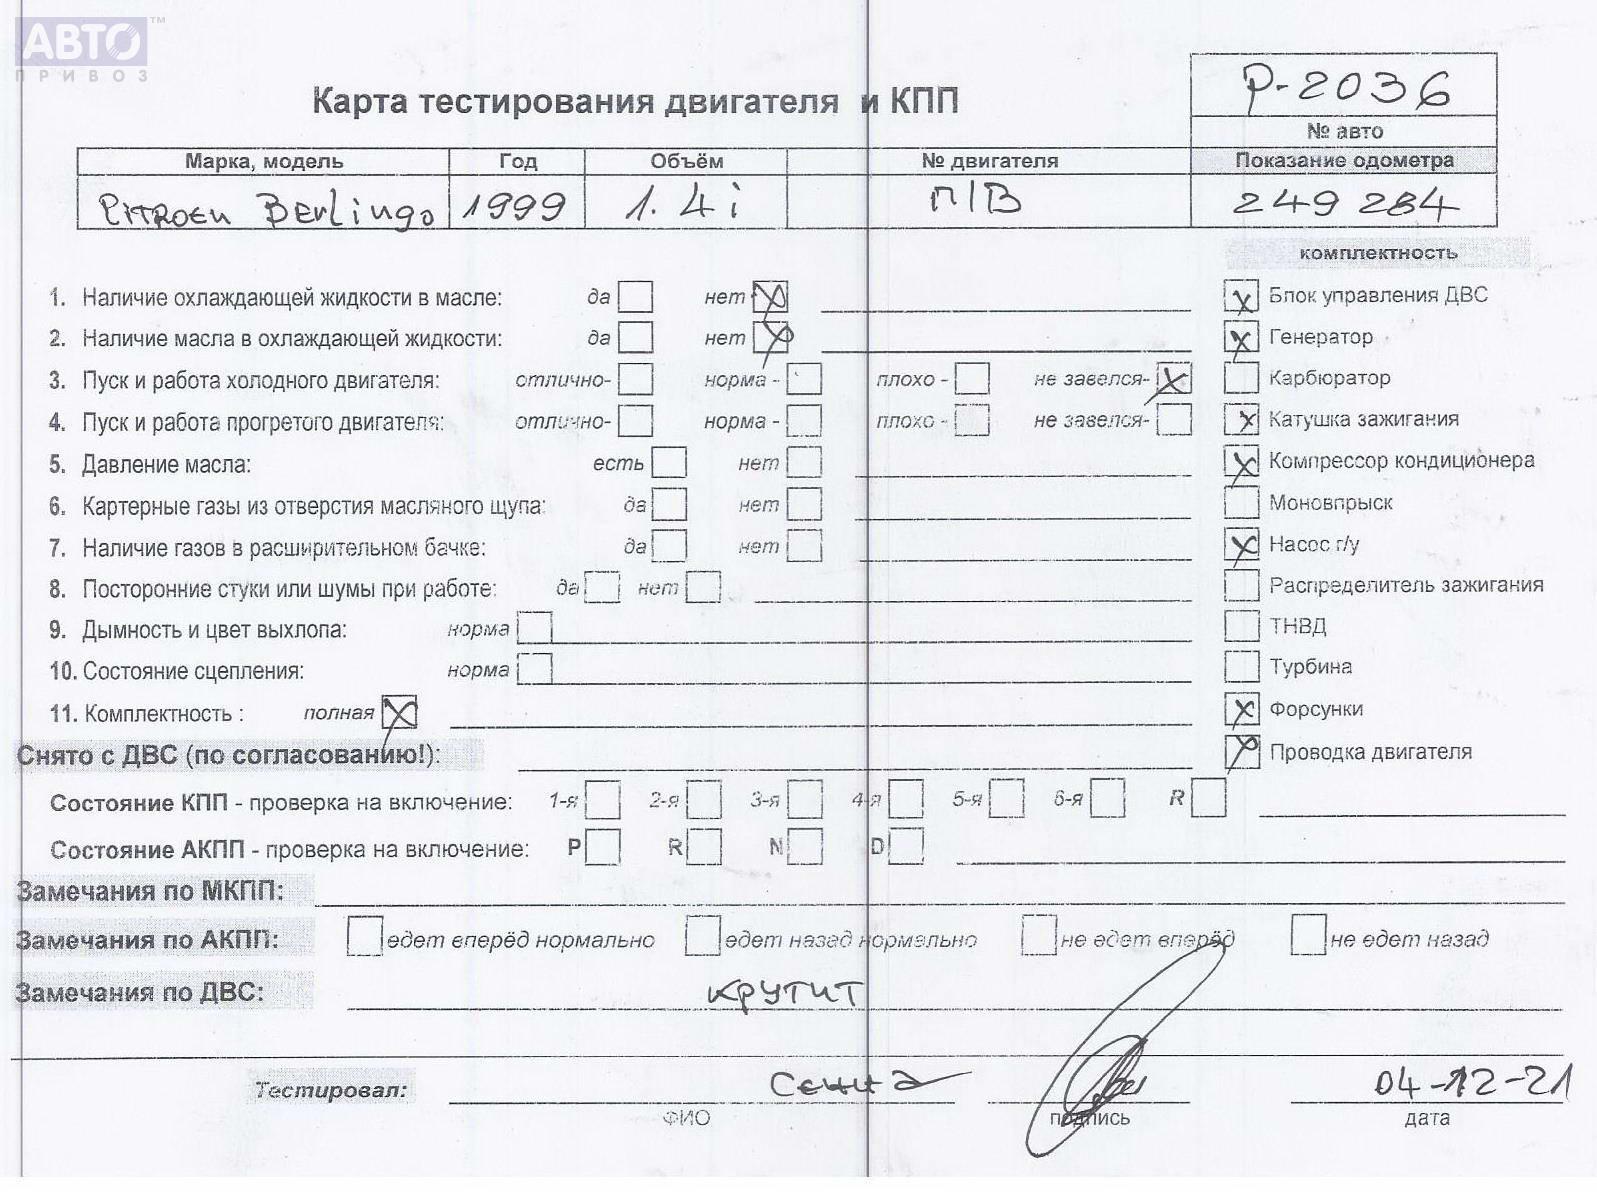 АВТО™
ПРИВОЗ
Карта тестирования двигателя и КПП
P-2036
№ авто
Марка, модель Год Объём № двигателя Показание одометра
CITROEN BERLINGO 1999 1.4i П/В 249 284
комплектность
1. Наличие охлаждающей жидкости в масле: да нет Блок управления ДВС
2. Наличие масла в охлаждающей жидкости: да нет Генератор
3. Пуск и работа холодного двигателя: отлично- норма - плохо - не завелся- Карбюратор
4. Пуск и работа прогретого двигателя: отлично- норма - плохо - не завелся- Катушка зажигания
5. Давление масла: есть нет Компрессор кондиционера
6. Картерные газы из отверстия масляного щупа: да нет Моновпрыск
7. Наличие газов в расширительном бачке: да нет Насос г/у
8. Посторонние стуки или шумы при работе: да нет Распределитель зажигания
9. Дымность и цвет выхлопа: норма ТНВД
10. Состояние сцепления: норма Турбина
11. Комплектность : полная Форсунки
Снято с ДВС (по согласованию!): Проводка двигателя
Состояние КПП - проверка на включение: 1-я 2-я 3-я 4-я 5-я 6-я R
Состояние АКПП - проверка на включение: P R N D
Замечания по МКПП:
Замечания по АКПП: едет вперёд нормально едет назад нормально не едет вперёд не едет назад
Замечания по ДВС: крутит
Тестировал: 04-12-21
ФИО подпись дата